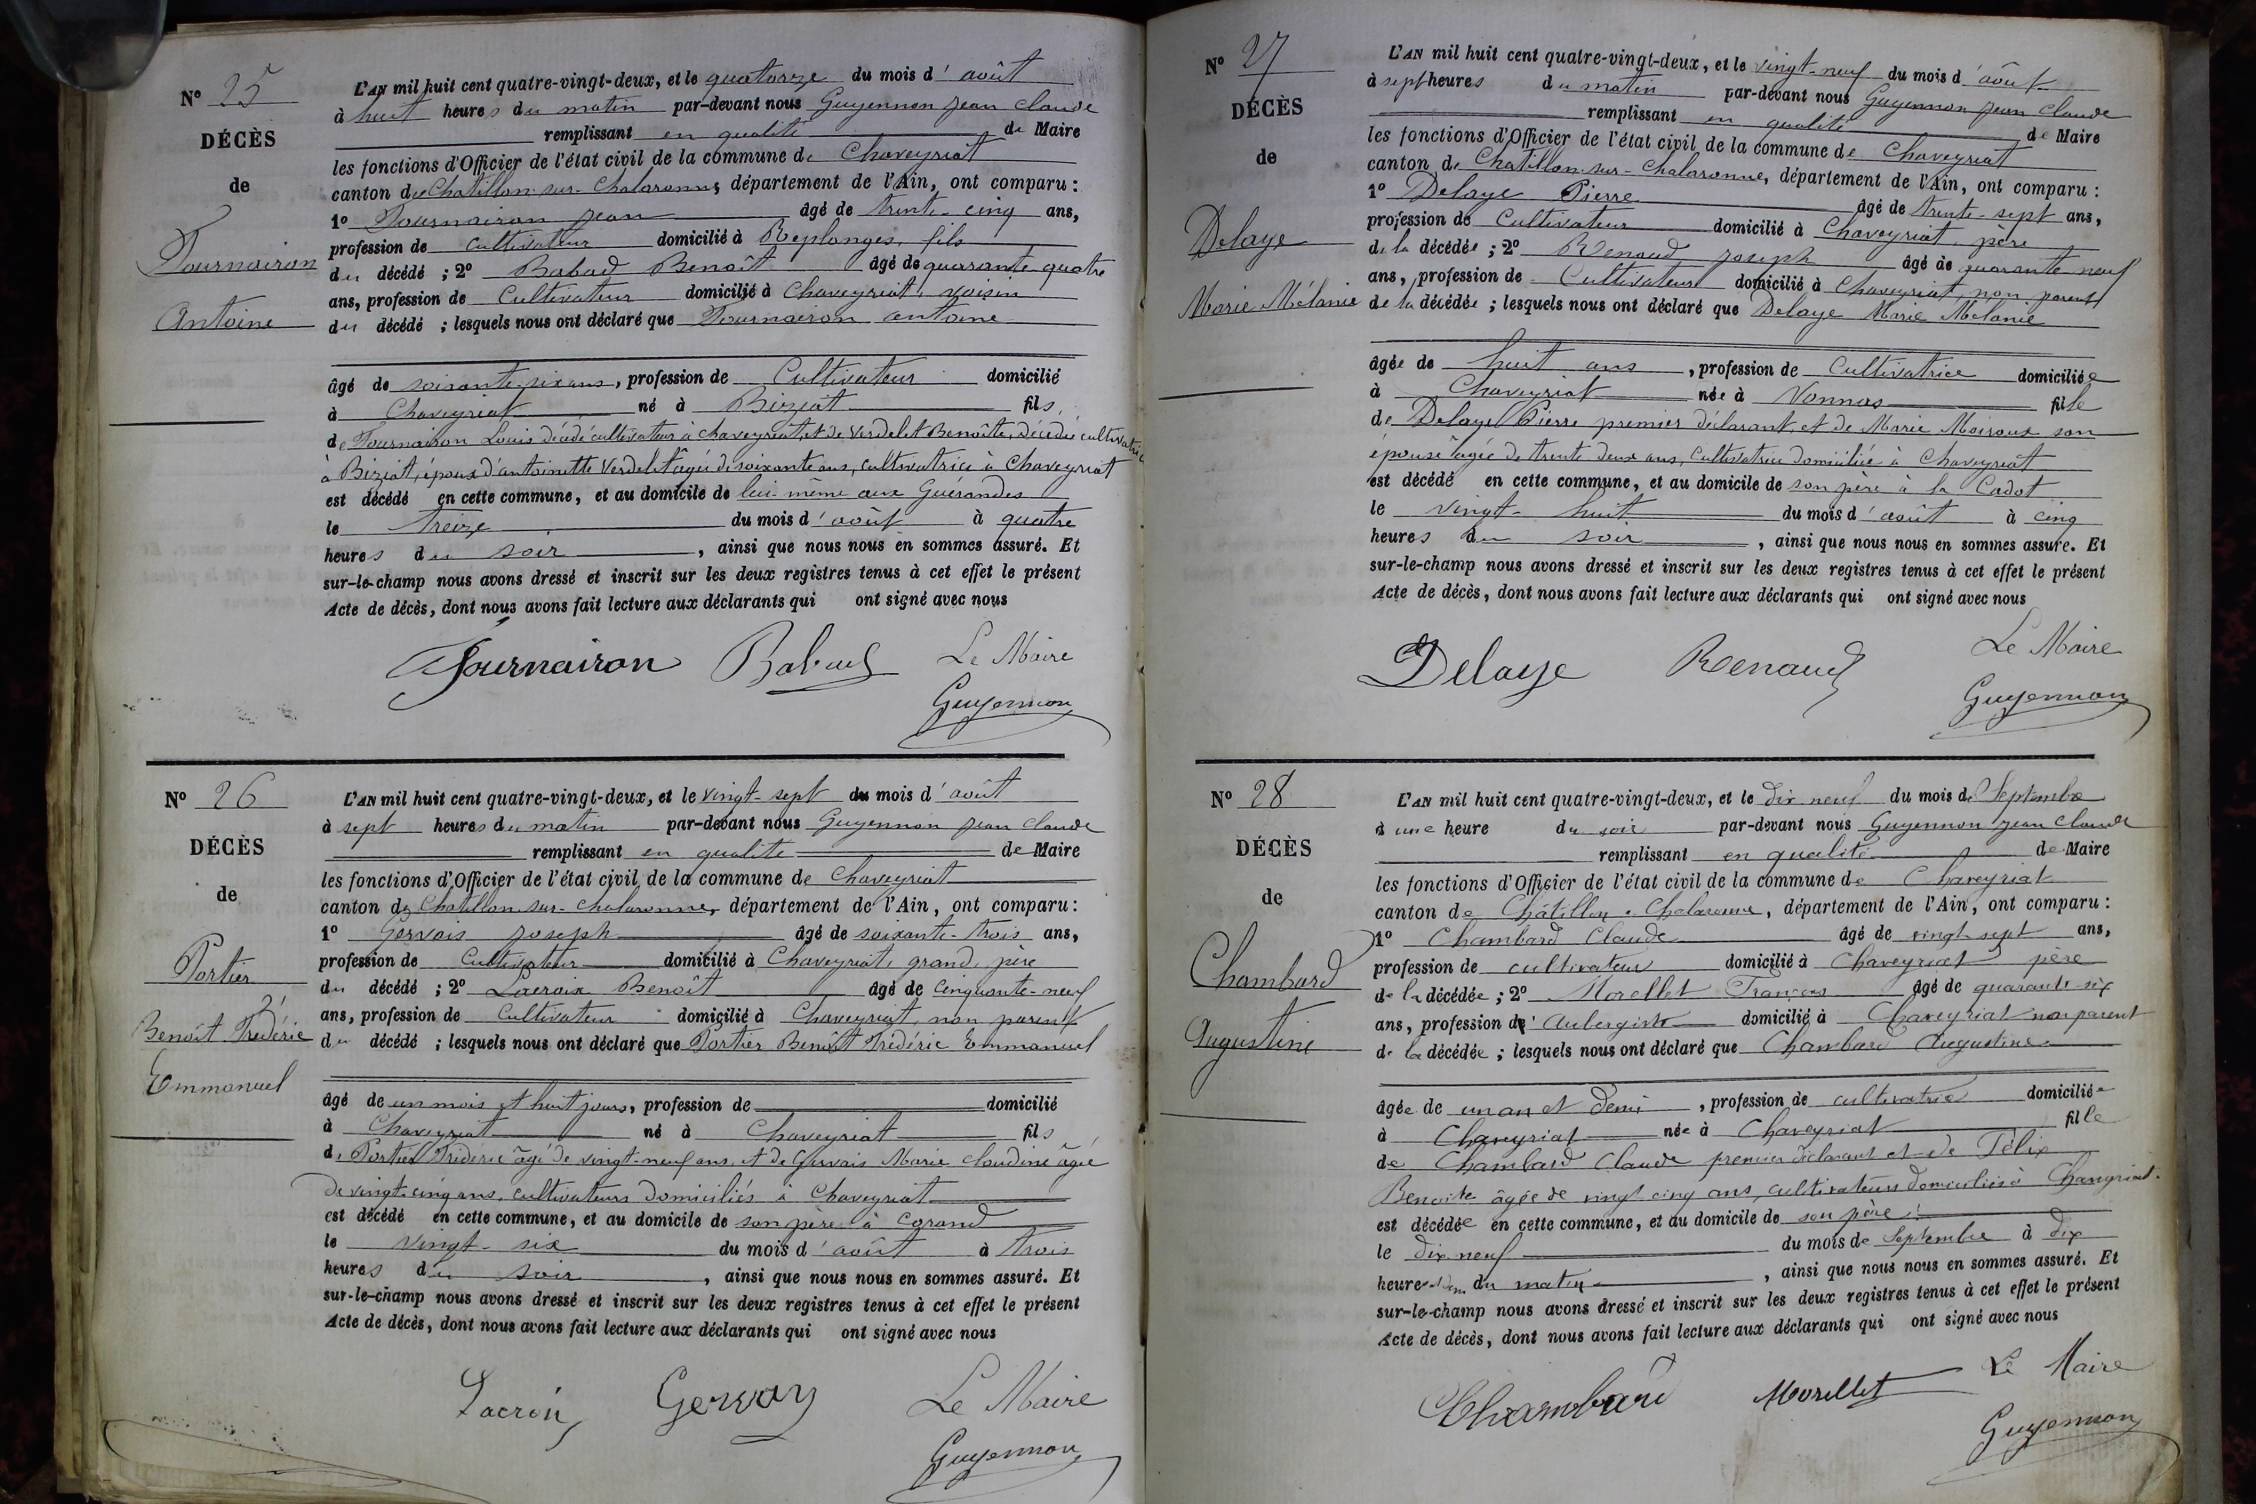 N° 25
DÉCÈS
de
Tournairon
Antoine
L'AN mil huit cent quatre-vingt-deux, et le quatorze du mois d'août
à huit heures du matin par-devant nous Guyennon jean claude
remplissant en qualité de Maire
les fonctions d'Officier de l'état civil de la commune de Chaveyriat
canton de Chatillon-sur-Chalaronne, département de l'Ain, ont comparu :
1° Tournairon jean âgé de trente-cinq ans,
profession de cultivateur domicilié à Replonges, fils
du décédé ; 2° Babad Benoît âgé de quarante quatre
ans, profession de Cultivateur domicilié à Chaveyriat, voisin
du décédé ; lesquels nous ont déclaré que Tournairon antoine
âgé de soixante six ans, profession de Cultivateur domicilié
à Chaveyriat né à Biziat fils,
de Tournairon Louis décédé cultivateur à chaveyriat et de Verdelet Benoîte, décédée cultivatrice
à Biziat, époux d'antoinette Verdelet âgée de soixante ans, cultivatrice à Chaveyriat
est décédé en cette commune, et au domicile de lui-même aux Guérandes
le treize du mois d'août à quatre
heures du soir, ainsi que nous nous en sommes assuré. Et
sur-le-champ nous avons dressé et inscrit sur les deux registres tenus à cet effet le présent
Acte de décès, dont nous avons fait lecture aux déclarants qui ont signé avec nous
Tournairon Babad Le Maire
Guyennon
N° 26
DÉCÈS
de
Portier
Benoît Frédéric
Emmanuel
L'AN mil huit cent quatre-vingt-deux, et le vingt-sept du mois d'août
à sept heures du matin par-devant nous Guyennon jean claude
remplissant en qualité de Maire
les fonctions d'Officier de l'état civil de la commune de Chaveyriat
canton de Chatillon-sur-chalaronne, département de l'Ain, ont comparu :
1° Gervais joseph âgé de soixante-trois ans,
profession de Cultivateur domicilié à Chaveyriat, grand-père
du décédé ; 2° Lacroix Benoît âgé de cinquante-neuf
ans, profession de Cultivateur domicilié à Chaveyriat, non parent
du décédé ; lesquels nous ont déclaré que Portier Benoît Frédéric Emmanuel
âgé de un mois et huit jours, profession de domicilié
à Chaveyriat né à Chaveyriat fils
de Portier Frideric âgé de vingt-neuf ans, et de Gervais Marie claudine âgée
de vingt-cinq ans, cultivateurs domiciliés à Chaveyriat
est décédé en cette commune, et au domicile de son père à Corand
le vingt-six du mois d'août à trois
heures du soir, ainsi que nous nous en sommes assuré. Et
sur-le-champ nous avons dressé et inscrit sur les deux registres tenus à cet effet le présent
Acte de décès, dont nous avons fait lecture aux déclarants qui ont signé avec nous
Lacroix Gervais Le Maire
Guyennon
N° 27
DÉCÈS
de
Delaye
Marie Mélanie
L'AN mil huit cent quatre-vingt-deux, et le vingt-neuf du mois d'août
à sept heures du matin par-devant nous Guyennon jean claude
remplissant en qualité de Maire
les fonctions d'Officier de l'état civil de la commune de Chaveyriat
canton de Chatillon-sur-Chalaronne, département de l'Ain, ont comparu :
1° Delaye Pierre âgé de trente-sept ans,
profession de Cultivateur domicilié à Chaveyriat, père
de la décédée ; 2° Renaud joseph âgé de quarante-neuf
ans, profession de Cultivateur domicilié à Chaveyriat, non parent
de la décédée ; lesquels nous ont déclaré que Delaye Marie Mélanie
âgée de huit ans, profession de Cultivatrice domiciliée
à Chaveyriat née à Vonnas fille
de Delaye Pierre premier déclarant, et de Marie Moiroux son
épouse âgée de trente deux ans, Cultivatrice domiciliée à Chaveyriat
est décédé en cette commune, et au domicile de son père à la Cadot
le vingt-huit du mois d'août à cinq
heures du soir, ainsi que nous nous en sommes assuré. Et
sur-le-champ nous avons dressé et inscrit sur les deux registres tenus à cet effet le présent
Acte de décès, dont nous avons fait lecture aux déclarants qui ont signé avec nous
Delaye Renaud Le Maire
Guyennon
N° 28
DÉCÈS
de
Chambard
Augustine
L'AN mil huit cent quatre-vingt-deux, et le dix neuf du mois de Septembre
à une heure du soir par-devant nous Guyennon jean claude
remplissant en qualité de Maire
les fonctions d'Officier de l'état civil de la commune de Chaveyriat
canton de Châtillon s. Chalaronne, département de l'Ain, ont comparu :
1° Chambard Claude âgé de vingt sept ans,
profession de cultivateur domicilié à Chaveyriat père
de la décédée ; 2° Morellet François âgé de quarante-six
ans, profession d'Aubergiste domicilié à Chaveyriat non parent
de la décédée ; lesquels nous ont déclaré que Chambard Augustine
âgée de un an et demi, profession de cultivatrice domiciliée
à Chaveyriat née à Chaveyriat fille
de Chambard Claude premier déclarant et de Félix
Benoite âgée de vingt cinq ans, cultivateurs domiciliés à Chaveyriat.
est décédée en cette commune, et au domicile de son père
le dix neuf du mois de Septembre à dix
heures du matin, ainsi que nous nous en sommes assuré. Et
sur-le-champ nous avons dressé et inscrit sur les deux registres tenus à cet effet le présent
Acte de décès, dont nous avons fait lecture aux déclarants qui ont signé avec nous
Chambard Morellet Le Maire
Guyennon